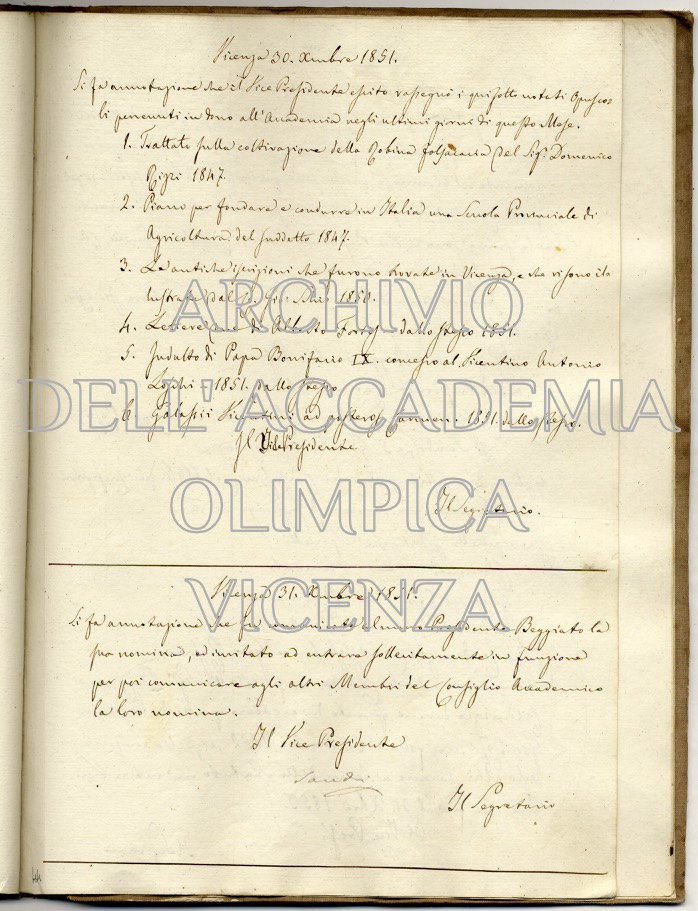 Vicenza 30. Xmbre 1851.
Si fa annotazione che il Vice Presidente esito rassegnò i quisotto notati Opusco-
li pervenuti in dono all'Accademia negli ultimi giorni di questo Mese.
1. Trattato sulla coltivazione della Robinia falsacacia del Sig. Domenico
Rizzi 1847.
2. Piano per fondare e condurre in Italia una Scuola Provinciale di
Agricoltura del suddetto 1847.
3. Le antiche iscrizioni che furono trovate in Vicenza, e che vi sono illu
strate dal 1850.
4. di Alberto dallo stesso 1851.
5. Indulto di Papa Bonifacio IX. concesso al Vicentino Antonio
Loschi - 1851. dallo stesso
6. Vicentini ad posteros Carmen. 1851. dallo stesso.
Il Vice Presidente
Il Segretario.
Vicenza 31. Xmbre 1851.
Si fa annotazione che fu comunicata al nuovo Presidente Beggiato la
sua nomina, ed invitato ad entrare sollecitamente in funzione
per poi comunicare agli altri Membri del Consiglio Accademico
la loro nomina.
Il Vice Presidente
Il Segretario
44
ARCHIVIO
DELL'ACCADEMIA
OLIMPICA
VICENZA